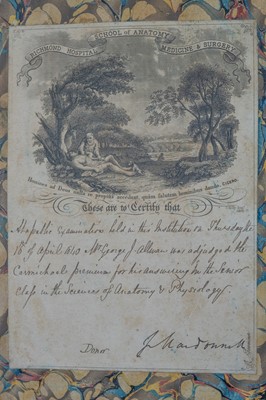 SCHOOL OF ANATOMY
RICHMOND HOSPITAL MEDICINE & SURGERY
Homines ad Deos nulla re propius accedunt quam salutem hominibus dando. CICERO.
These are to Certify that
At a public Examination held in this Institution on Thursday the
of April Mr George J. Allman was adjudged the
Carmichael premium for his answering in the Senior
Class in the Sciences of Anatomy & Physiology.
Donor J. Macdonnell